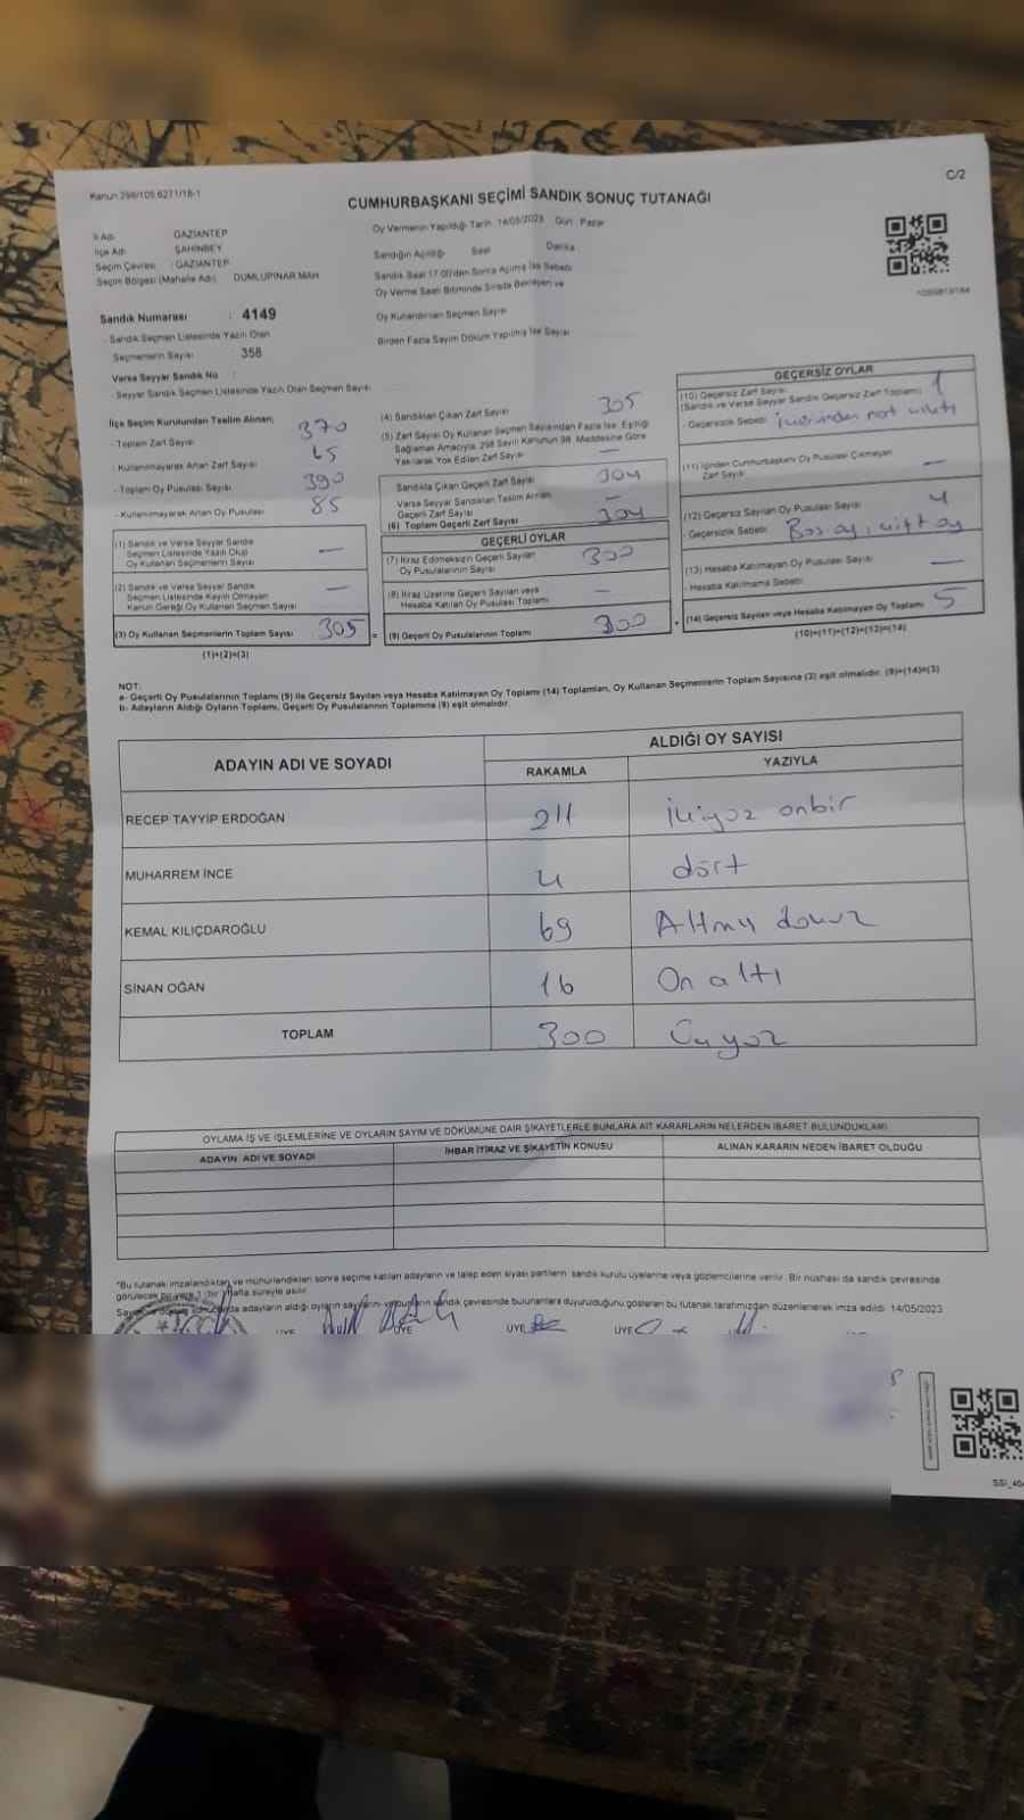 Kanun 298/105 6271/18-1
C/2
CUMHURBAŞKANI SEÇİMİ SANDIK SONUÇ TUTANAĞI
İl Adı GAZİANTEP
İlçe Adı ŞAHİNBEY
Seçim Çevresi : GAZİANTEP
Seçim Bölgesi (Mahalle Adı) DUMLUPINAR MAH
Sandık Numarası : 4149
Sandık Seçmen Listesinde Yazılı Olan
Seçmenlerin Sayısı 358
Varsa Seyyar Sandık No :
- Seyyar Sandık Seçmen Listesinde Yazılı Olan Seçmen Sayısı
Oy Vermenin Yapıldığı Tarih 14/05/2023 Gün : Pazar
Sandığın Açıldığı Saat Dakika
Sandık Saat 17.00'den Sonra Açılmış İse Sebebi
Oy Verme Saati Bitiminde Sırada Bekleyen ve
Oy Kullandırılan Seçmen Sayısı
Birden Fazla Sayım Döküm Yapılmış İse Sayısı
İlçe Seçim Kurulundan Teslim Alınan;
- Toplam Zarf Sayısı 370
- Kullanılmayarak Artan Zarf Sayısı 65
- Toplam Oy Pusulası Sayısı 390
- Kullanılmayarak Artan Oy Pusulası 85
(1) Sandık ve Varsa Seyyar Sandık
Seçmen Listesinde Yazılı Olup
Oy Kullanan Seçmenlerin Sayısı —
(2) Sandık ve Varsa Seyyar Sandık
Seçmen Listesinde Kayıtlı Olmayan
Kanun Gereği Oy Kullanan Seçmen Sayısı —
(3) Oy Kullanan Seçmenlerin Toplam Sayısı : 305 =
(1)+(2)=(3)
(4) Sandıktan Çıkan Zarf Sayısı 305
(5) Zarf Sayısı Oy Kullanan Seçmen Sayısından Fazla İse, Eşitliği
Sağlamak Amacıyla, 298 Sayılı Kanunun 98. Maddesine Göre
Yakılarak Yok Edilen Zarf Sayısı —
Sandıkta Çıkan Geçerli Zarf Sayısı 304
Varsa Seyyar Sandıktan Teslim Alınan
Geçerli Zarf Sayısı —
(6) Toplam Geçerli Zarf Sayısı 304
GEÇERLİ OYLAR
(7) İtiraz Edilmeksizin Geçerli Sayılan
Oy Pusulalarının Sayısı 300
(8) İtiraz Üzerine Geçerli Sayılan veya
Hesaba Katılan Oy Pusulası Toplamı —
(9) Geçerli Oy Pusulalarının Toplamı 300 +
GEÇERSİZ OYLAR
(10) Geçersiz Zarf Sayısı 1
(Sandık ve Varsa Seyyar Sandık Geçersiz Zarf Toplamı)
- Geçersizlik Sebebi: içerisinden not çıktı
(11) İçinden Cumhurbaşkanı Oy Pusulası Çıkmayan
Zarf Sayısı —
(12) Geçersiz Sayılan Oy Pusulası Sayısı 4
- Geçersizlik Sebebi: Boş oy, çift oy
(13) Hesaba Katılmayan Oy Pusulası Sayısı —
- Hesaba Katılmama Sebebi:
(14) Geçersiz Sayılan veya Hesaba Katılmayan Oy Toplamı 5
(10)+(11)+(12)+(13)=(14)
NOT:
a- Geçerli Oy Pusulalarının Toplamı (9) ile Geçersiz Sayılan veya Hesaba Katılmayan Oy Toplamı (14) Toplamları, Oy Kullanan Seçmenlerin Toplam Sayısına (3) eşit olmalıdır. (9)+(14)=(3)
b- Adayların Aldığı Oyların Toplamı, Geçerli Oy Pusulalarının Toplamına (9) eşit olmalıdır.
ADAYIN ADI VE SOYADI
ALDIĞI OY SAYISI
RAKAMLA YAZIYLA
RECEP TAYYİP ERDOĞAN 211 İkiyüz onbir
MUHARREM İNCE 4 dört
KEMAL KILIÇDAROĞLU 69 Altmış dokuz
SİNAN OĞAN 16 On altı
TOPLAM 300 Üçyüz
OYLAMA İŞ VE İŞLEMLERİNE VE OYLARIN SAYIM VE DÖKÜMÜNE DAİR ŞİKAYETLERLE BUNLARA AİT KARARLARIN NELERDEN İBARET BULUNDUKLARI
ADAYIN ADI VE SOYADI İHBAR İTİRAZ VE ŞİKAYETİN KONUSU ALINAN KARARIN NEDEN İBARET OLDUĞU
*Bu tutanak imzalandıktan ve mühürlendikten sonra seçime katılan adayların ve talep eden siyasi partilerin sandık kurulu üyelerine veya gözlemcilerine verilir. Bir nüshası da sandık çevresinde
görülecek bir yere 1 bir hafta süreyle asılır
adayların aldığı oyların sandık çevresinde bulunanlara duyurulduğunu gösteren bu tutanak tarafımızdan düzenlenerek imza edildi. 14/05/2023
ÜYE ÜYE ÜYE ÜYE